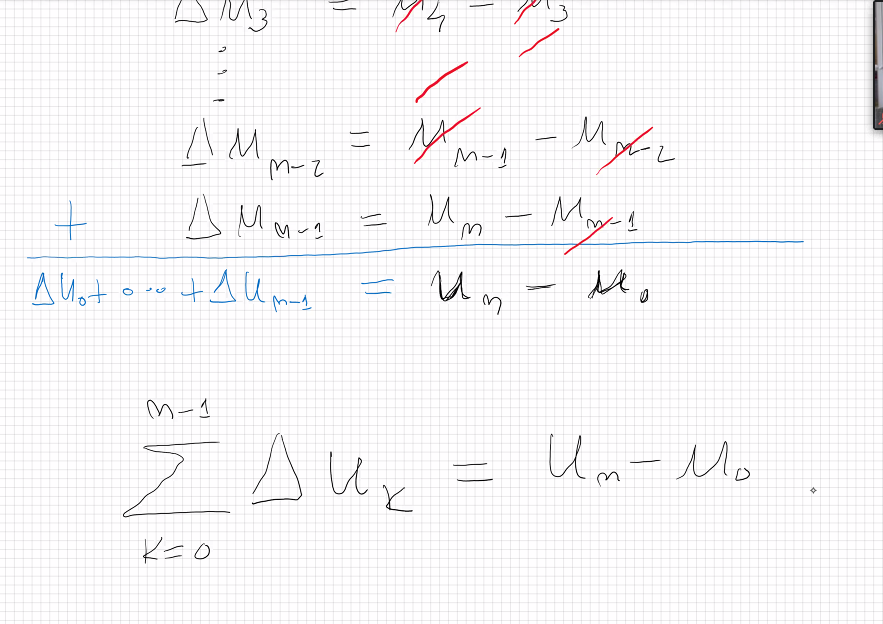 Δu₃ = u₄ − u₃
⋮
Δu_{n−2} = u_{n−1} − u_{n−2}
+ Δu_{n−1} = u_n − u_{n−1}
Δu₀ + ... + Δu_{n−1} = u_n − u₀
n−1
∑ Δu_k = u_n − u₀
k=0